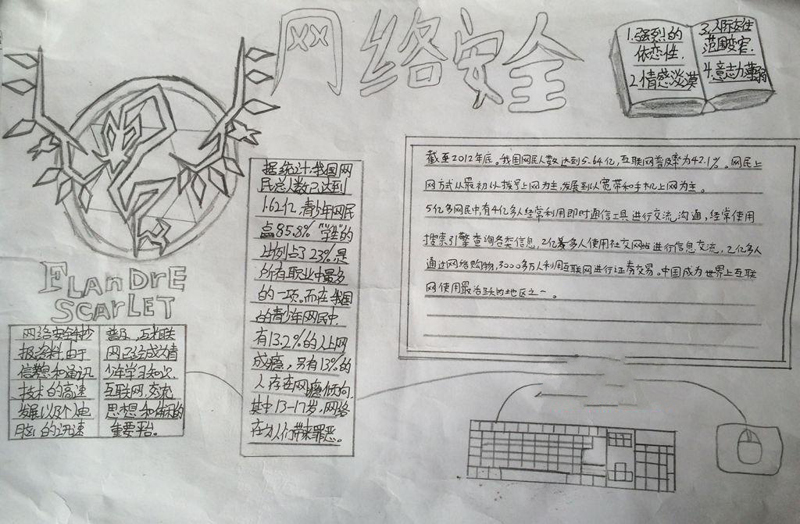 网络安全
1.强烈的
依恋性.
2.情感淡漠
3.人际交往
范围变窄.
4.意志力薄弱
FLANDRE
SCARLET
网络安全手抄
报资料:由于
信息和通讯
技术的高速
发展以及个人电
脑的迅速
普及,互联
网已经成为青
少年学习知识.
互联网,交流
思想和休闲的
重要平台。
据统计:我国网
民总人数已达到
1.62亿,青少年网民
占85.8%"学生"的
比例占了23%.是
所有职业中最多
的一项。而在我国
的青少年网民中,
有13.2%的人上网
成瘾,另有13%的
人存在网瘾倾向,
其中13-17岁,网络
在为人们带来罪恶。
截至2012年底。我国网民人数达到5.64亿,互联网普及率为42.1%。网民上
网方式从最初以拨号上网为主,发展到以宽带和手机上网为主。
5亿多网民中有4亿多人经常利用即时通信工具进行交流,沟通,经常使用
搜索引擎查询各类信息,2亿多人使用社交网站进行信息交流,2亿多人
通过网络购物,3000多万人利用互联网进行证券交易。中国成为世界上互联
网使用最活跃的地区之一。